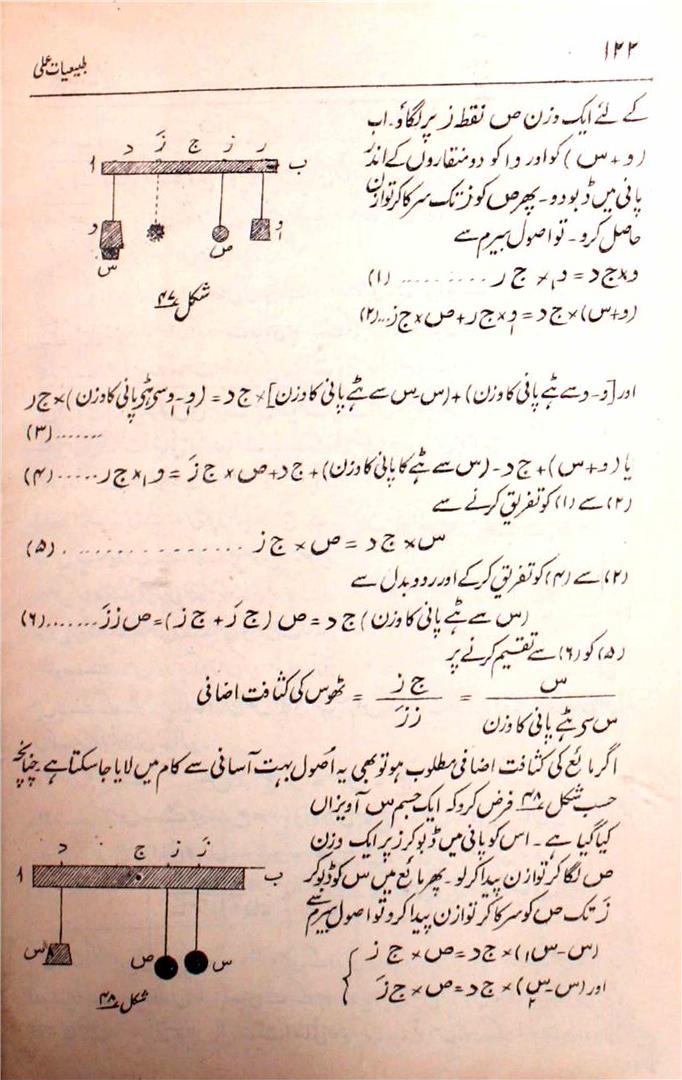 ۱۴۴
طبیعیات عملی
کے لئے ایک وزن ص نقطہ ز پر لگاؤ۔ اب
(و + س) کو اور وا کو دو منقاروں کے اندر
پانی میں ڈبو دو۔ پھر ص کو زَ تک سرکا کر توازن
حاصل کرو۔ تو اصول بیرم سے
و × ج د = و۱ × ج ر ......... (۱)
(و + س) × ج د = و۱ × ج ر + ص × ج ز ... (۲)
ا د زَ ج ز ر ب
و س ص و۱
شکل ۴۷
اور [و - و سے ہٹے پانی کا وزن) + (س - س سے ہٹے پانی کا وزن] × ج د = (و۱ - و۱ سی ہٹی پانی کا وزن) × ج ر
....... (۳)
یا (و + س) + ج د - (س سے ہٹے کا پانی کا وزن) + ج د + ص × ج زَ = و۱ × ج ر ..... (۴)
(۲) سے (۱) کو تفریق کرنے سے
س × ج د = ص × ج ز ............... (۵)
(۲) سے (۴) کو تفریق کر کے اور ردوبدل سے
(س سے ہٹے پانی کا وزن) ج د = ص (ج زَ + ج ز) = ص ززَ ....... (۶)
(۵) کو (۶) سے تقسیم کرنے پر
س / س سی ہٹے پانی کا وزن = ج ز / ززَ = ٹھوس کی کثافت اضافی
اگر مائع کی کثافت اضافی مطلوب ہو تو بھی یہ اُصول بہت آسانی سے کام میں لایا جا سکتا ہے۔ چنانچہ
حسب شکل ۴۸ فرض کرو کہ ایک جسم س آویزاں
کیا گیا ہے۔ اس کو پانی میں ڈبو کر ز پر ایک وزن
ص لگا کر توازن پیدا کر لو۔ پھر مائع میں س کو ڈبو کر
زَ تک ص کو سرکا کر توازن پیدا کرو تو اصول بیرم سے
(س - س۱) × ج د = ص × ج ز
اور (س - س۲) × ج د = ص × ج زَ
ا د ج ز زَ ب
س ص س
شکل ۴۸